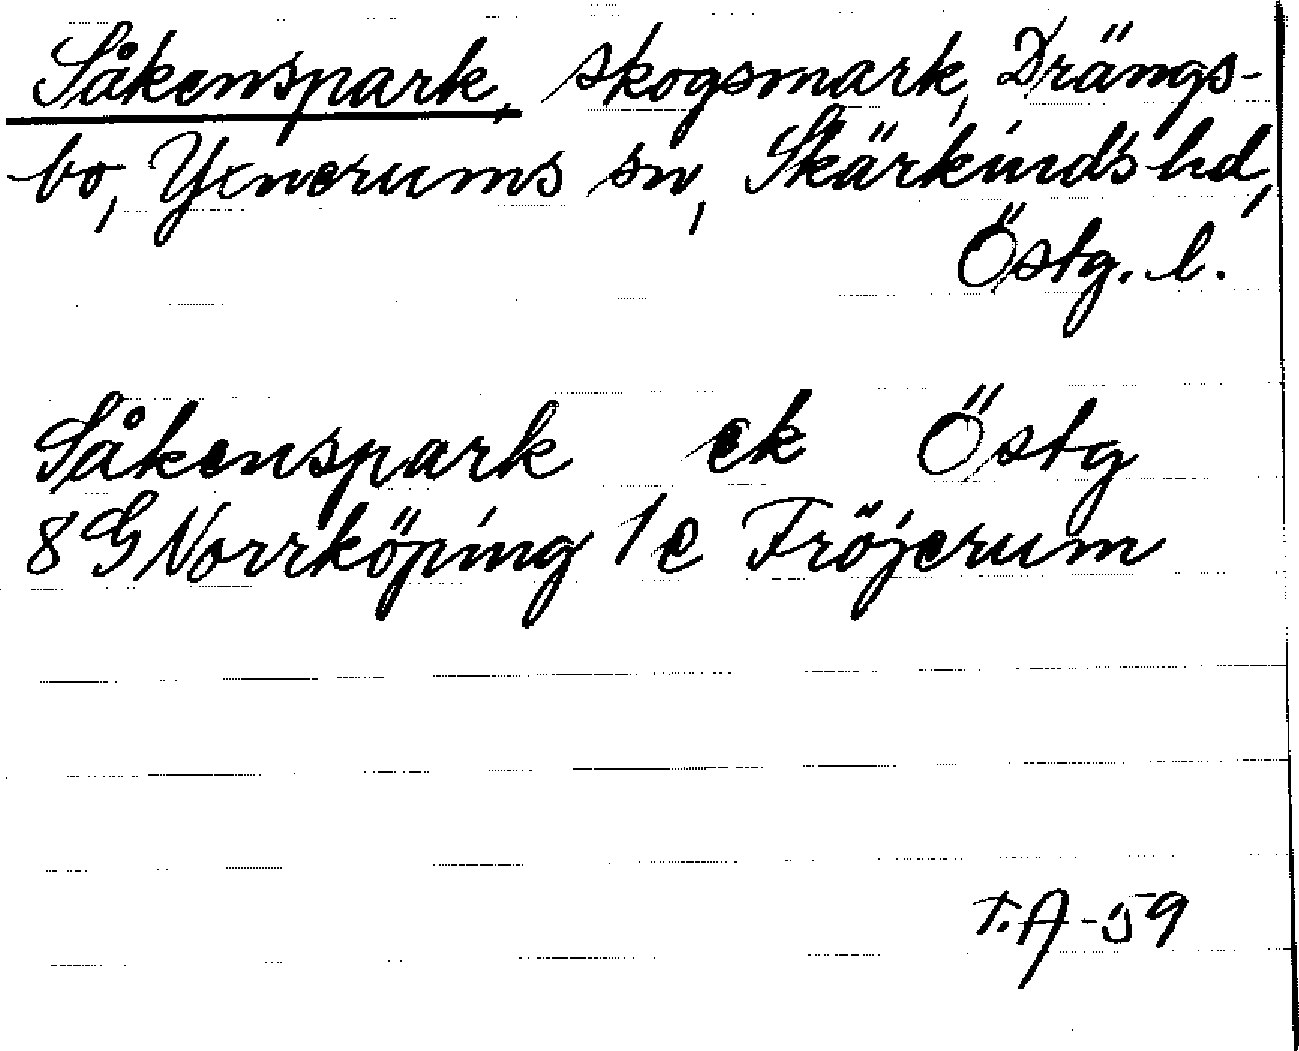 Såkenspark, skogsmark, Drängs-
bo, Yxnerums sn, Skärkinds hd,
Östg. l.
Såkenspark ek Östg
8G Norrköping 1e Fröjerum
T.A-59